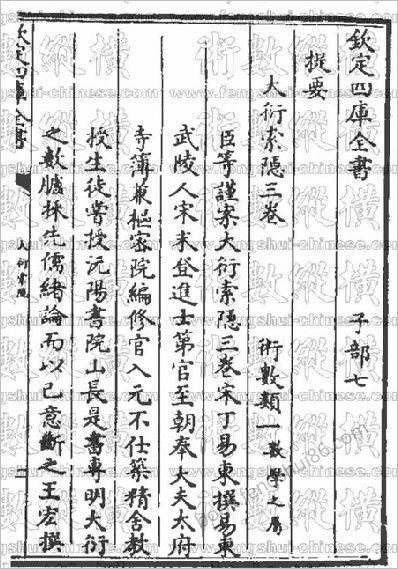 欽定四庫全書　子部七
提要　術數類一數學之屬
大衍索隱三卷
臣等謹案大衍索隱三卷宋丁易東撰易東
武陵人宋末登進士第官至朝奉大夫太府
寺簿兼樞密院編修官入元不仕築精舍教
授生徒嘗授沅陽書院山長是書專明大衍
之數臚採先儒緒論而以已意斷之王宏撰
欽定四庫全書
大衍索隱
術數縱橫
www.fengshui-chinese.com